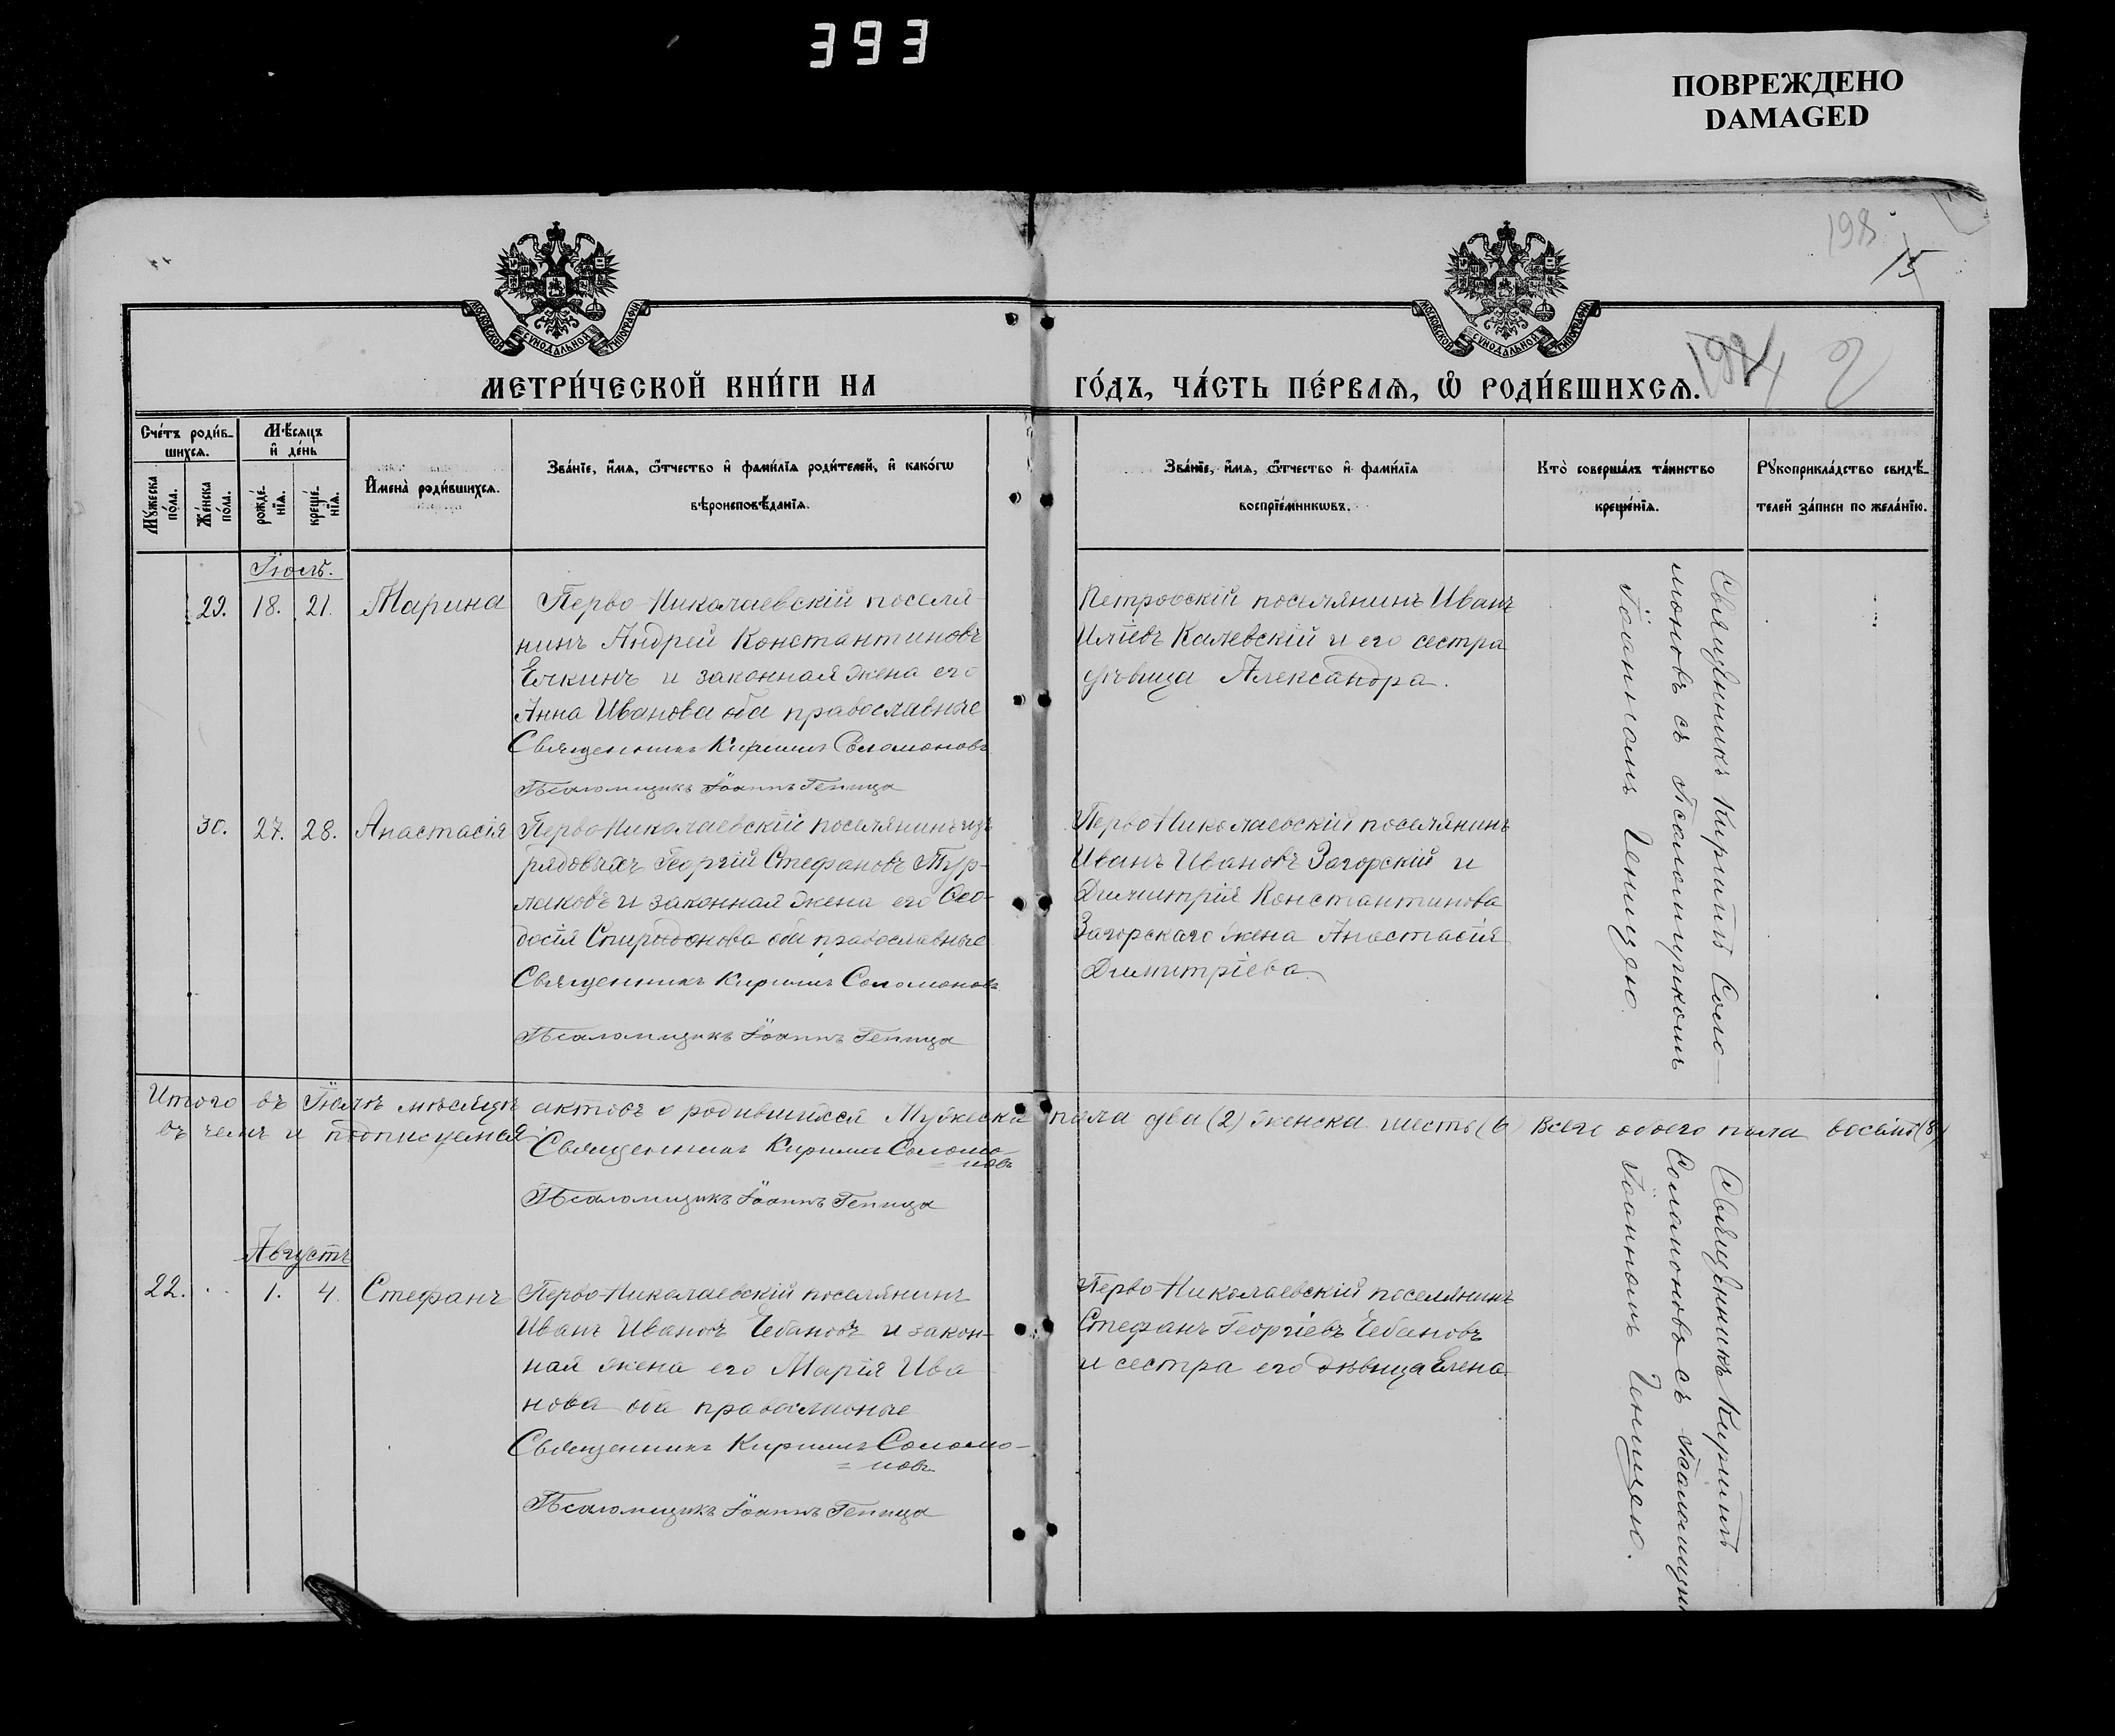 393
ПОВРЕЖДЕНО
DAMAGED
198
15
МОСКОВСКОЙ СѴНОДАЛЬНОЙ ТИПОГРАФІИ
МОСКОВСКОЙ СѴНОДАЛЬНОЙ ТИПОГРАФІИ
МЕТРИ́ЧЕСКОЙ КНИ́ГИ НА
ГО́ДЪ, ЧА́СТЬ ПЕ́РВАѦ, Ѽ РОДИ́ВШИХСѦ.
Сче́тъ роди́в-
шихсѧ.
Мꙋ́жеска по́ла.
Же́нска по́ла.
Мѣ́сѧцъ
и҆ де́нь
рожде́-
нїѧ.
креще́-
нїѧ.
И҆мена̀ роди́вшихсѧ.
Зва́нїе, и҆́мѧ, ѻ҆́тчество и҆ фами́лїѧ роди́телей, и҆ како́гѡ
вѣроисповѣ́данїѧ.
Зва́нїе, и҆́мѧ, ѻ҆́тчество и҆ фами́лїѧ
воспрїе́мникѡвъ.
Кто̀ соверша́лъ та́инство
креще́нїѧ.
Рꙋкоприкла́дство свидѣ́-
телей за́писи по жела́нїю.
Іюль.
29. 18. 21. Марина
Перво-Николаевскій поселя-
нинъ Андрей Константиновъ
Елкинъ и законная жена его
Анна Иванова оба православные
Священникъ Кириллъ Соломоновъ
Псаломщикъ Іоаннъ Геница
Петровскій поселянинъ Иванъ
Иліевъ Калевскій и его сестра
дѣвица Александра.
Священникъ Кириллъ Соло-
моновъ съ Псаломщикомъ
Іоанномъ Геницею.
30. 27. 28. Анастасія
Перво Николаевскій поселянинъ изъ
рядовыхъ Георгій Стефановъ Тур-
лаковъ и законная жена его Ѳео-
досія Спиридонова оба православные
Священникъ Кириллъ Соломоновъ
Псаломщикъ Іоаннъ Геница
Перво Николаевскій поселянинъ
Иванъ Ивановъ Загорскій и
Димитрія Константинова
Загорскаго жена Анастасія
Димитріева.
Итого въ Іюлѣ мѣсяцѣ актовъ о родившихся Мужеска пола два (2) женска шесть (6) Всего обоего пола восемь (8)
въ чемъ и подписуемся
Священникъ Кириллъ Соломо-
=новъ
Псаломщикъ Іоаннъ Геница
Августъ
22. 1. 4. Стефанъ
Перво-Николаевскій поселянинъ
Иванъ Ивановъ Чебановъ и закон-
ная жена его Марія Ива
нова оба православные
Священникъ Кириллъ Соломо-
=новъ
Псаломщикъ Іоаннъ Геница
Перво-Николаевскій поселянинъ
Стефанъ Георгіевъ Чебановъ
и сестра его дѣвица Елена
Священникъ Кириллъ
Соломоновъ съ Псаломщик
Іоанномъ Геницею.